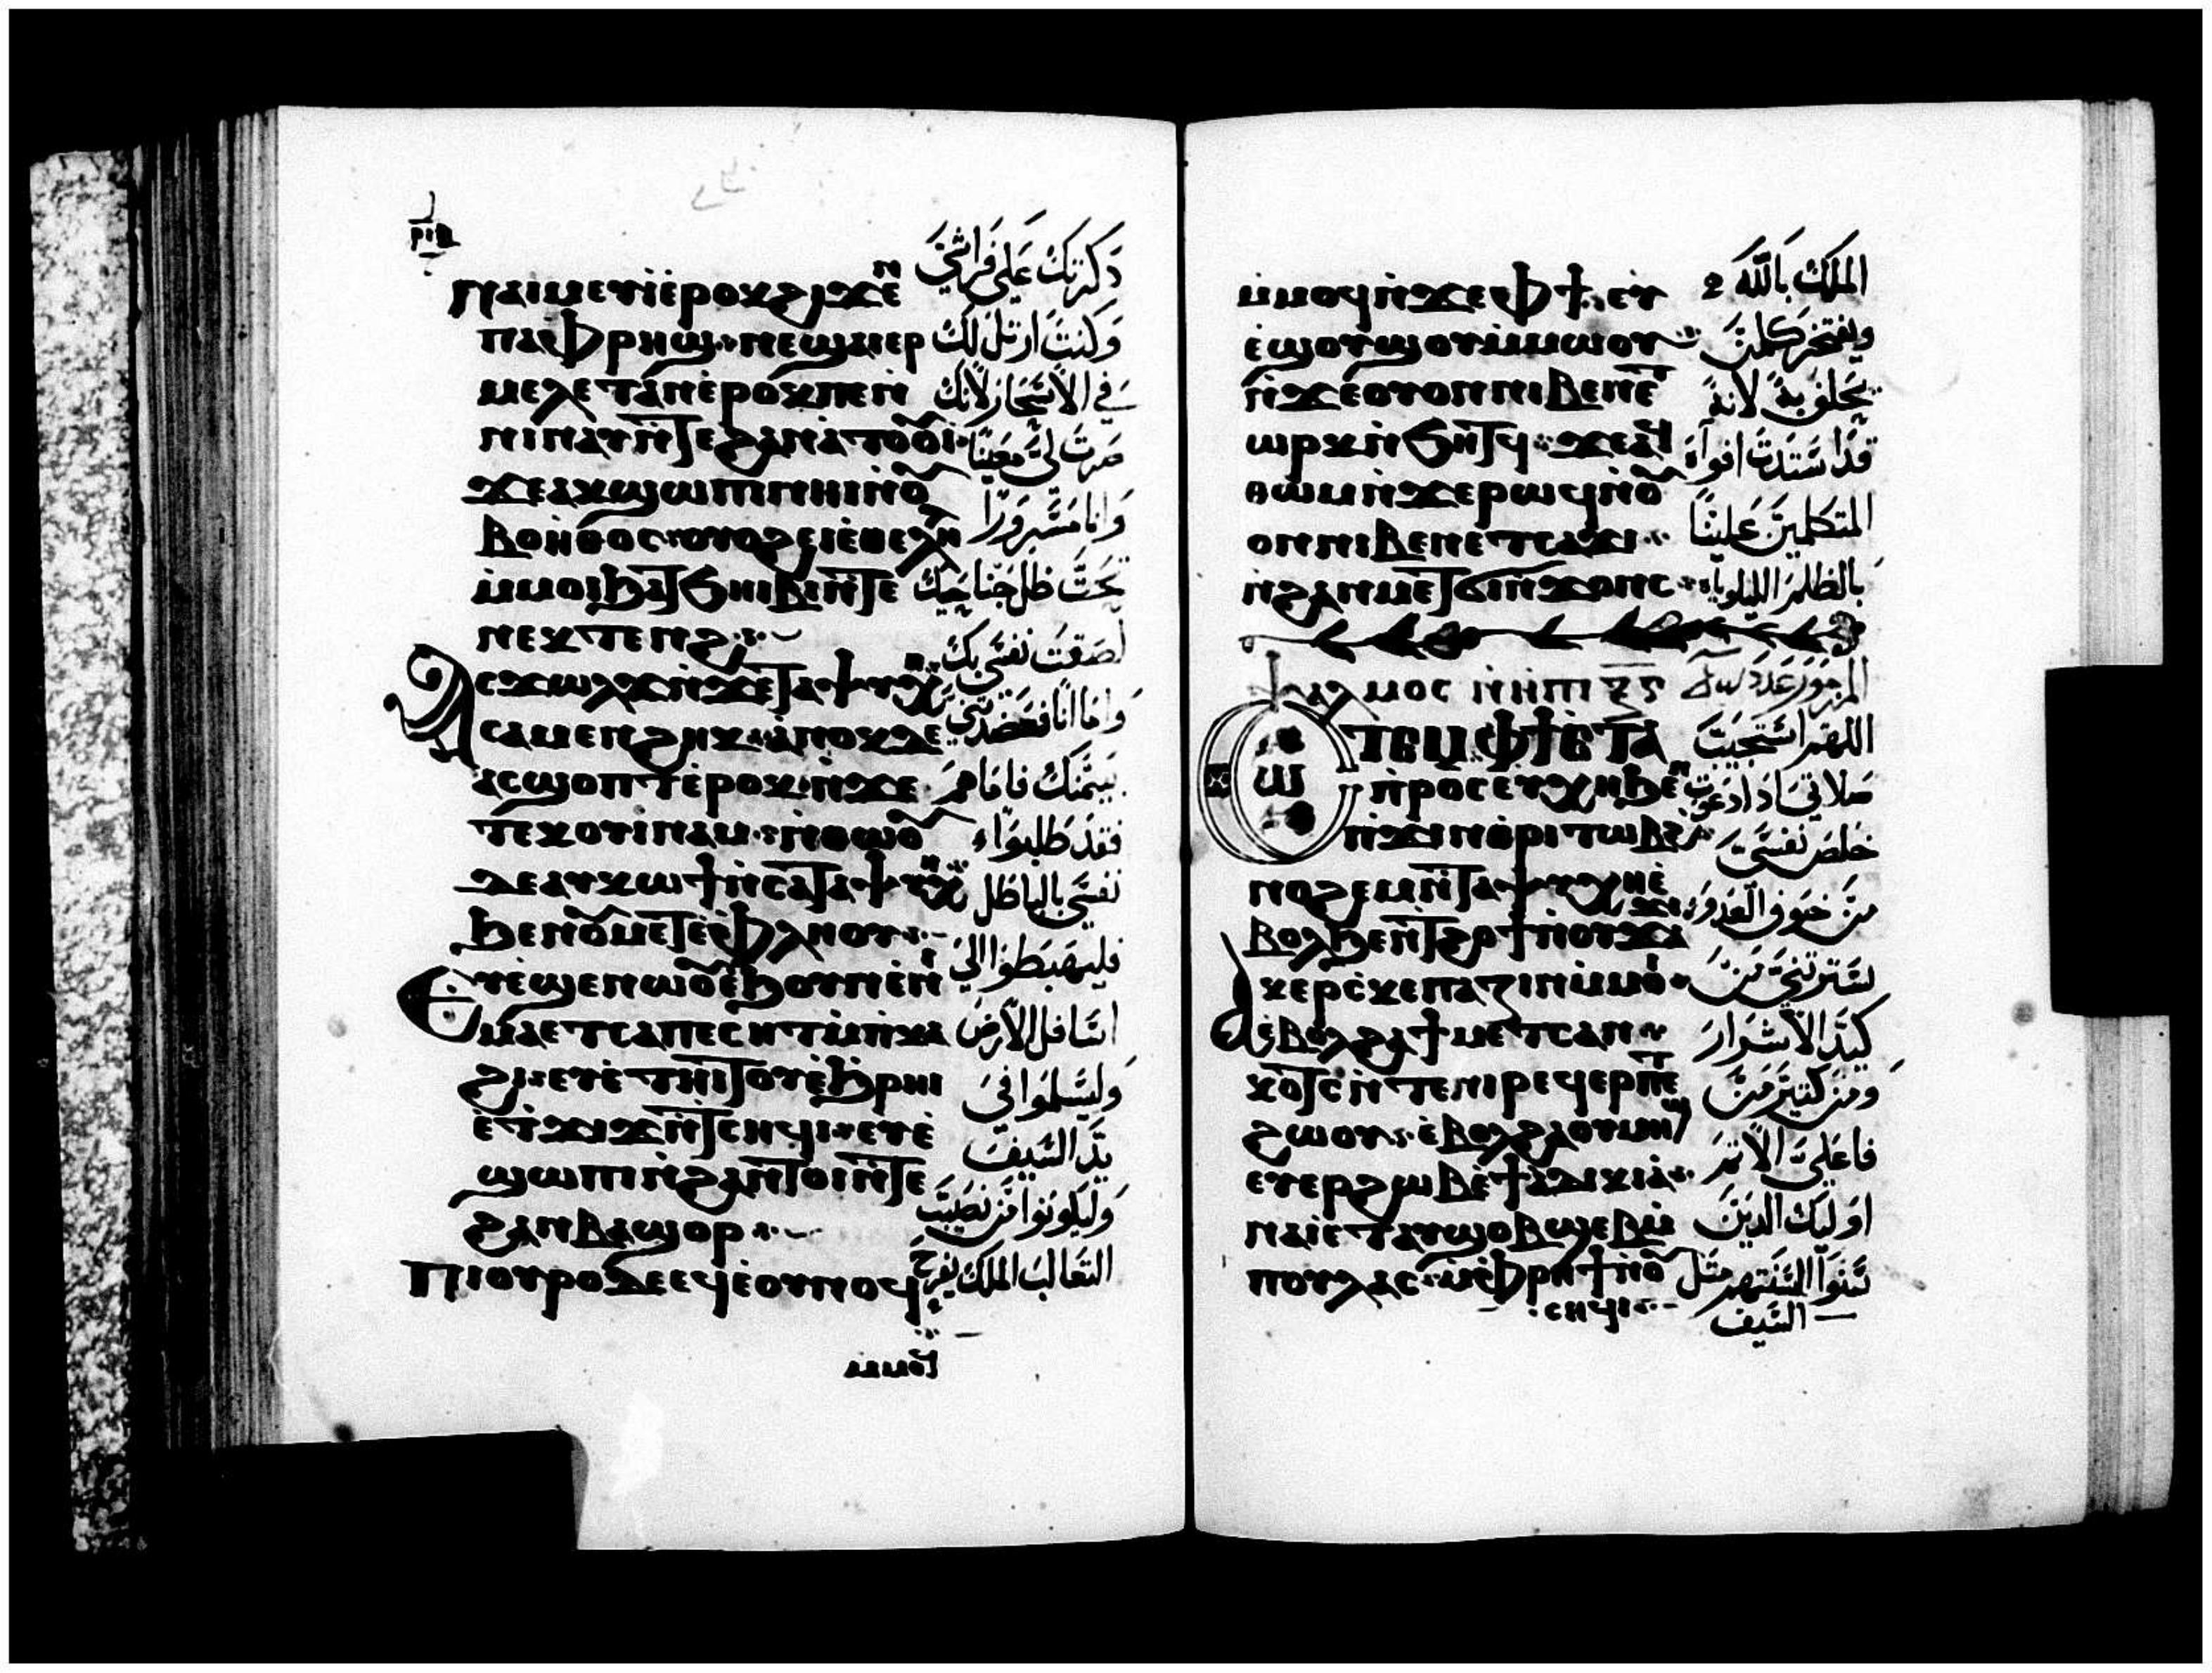 ⲣⲓⲃ
ⲛⲁⲓⲙⲉⲩⲓ̀ⲉ̀ⲣⲟⲕϩⲓϫⲉⲛ
ⲡⲁⲫⲣⲏϣ ⲛⲉϣⲁⲓⲉⲣ
ⲙⲉⲗⲉⲧⲁⲛⲉ̀ⲣⲟⲕⲡⲉⲛ̀
ⲛⲓⲛⲁⲩⲛ̀ⲧⲉϩⲁⲛⲁ̀ⲧⲟⲟⲩⲓ̀
ϫⲉⲁⲕϣⲱⲡⲓⲛⲏⲓⲛ̀ⲟⲩ
ⲃⲟⲏ̀ⲑⲟⲥ ⲟⲩⲟϩⲉⲓⲉ̀ⲑⲉⲗⲏⲗ
ⲙ̀ⲙⲟⲓϧⲁⲧϧⲏⲓⲃⲓⲛ̀ⲧⲉ
ⲛⲉⲕⲧⲉⲛϩ
ⲁⲥϫⲱⲗϫⲛ̀ϫⲉⲧⲁⲯⲩⲭⲏ
ⲥⲁⲙⲉⲛϩⲏⲕ ⲁ̀ⲛⲟⲕⲇⲉ
ⲁⲥϣⲟⲡⲧⲉ̀ⲣⲟⲕ ⲛ̀ϫⲉ
ⲧⲉⲕⲟⲩⲓⲛⲁⲙ ⲛ̀ⲑⲱⲟⲩ
ⲇⲉⲁⲩⲕⲱϯⲛ̀ⲥⲁⲧⲁⲯⲩⲭⲏ
ϧⲉⲛⲟⲩⲙⲉⲧⲉⲫⲗⲏⲟⲩ
ⲉⲩⲉ̀ϣⲉⲛⲱⲟⲩⲉ̀ϧⲟⲩⲛⲉ̀ⲛⲓ
ⲙⲁⲉⲧⲥⲁⲡⲉⲥⲏⲧⲙ̀ⲡ̀ⲕⲁ
ϩⲓ ⲉⲩⲉ̀ⲧⲏⲓⲧⲟⲩⲉ̀ϧⲣⲏⲓ
ⲉ̀ⲧϫⲓϫⲛ̀ⲧⲥⲏϥⲓ ⲉⲩⲉ̀
ϣⲱⲡⲓⲛ̀ϩⲁⲛⲧⲟⲓⲛ̀ⲧⲉ
ϩⲁⲛⲃⲁϣⲟⲣ
ⲡⲓⲟⲩⲣⲟⲇⲉⲉϥⲉ̀ⲟⲩⲛⲟϥ
ⲙⲙⲟϥ
ذكرتك على فراشي
وكنت ارتل لك
في الاسحار لانك
صرت لي معينا
وانا مسرورا
تحت ظل جناحيك
لصقت نفسي بك
واما انا فعضدتني
يمينك فاما هم
فقد طلبوا
نفسي بالباطل
فليهبطوا الي
اسافل الارض
وليسلموا في
يد السيف
وليكونوا من نصيب
الثعالب الملك يفرح
ⲙ̀ⲙⲟϥⲛ̀ϫⲉⲫϯ ⲉⲩ
ⲉ̀ϣⲟⲩϣⲟⲩⲙ̀ⲙⲱⲟⲩ
ⲛ̀ϫⲉⲟⲩⲟⲛⲛⲓⲃⲉⲛⲉⲧ
ⲱⲣⲕⲛ̀ϧⲏⲧϥ ϫⲉⲁϥ
ⲑⲱⲙⲛ̀ϫⲉⲣⲱϥⲛⲟⲩ
ⲟⲛⲛⲓⲃⲉⲛⲉⲧⲥⲁϫⲓ
ⲛ̀ϩⲁⲛⲙⲉⲧϭⲓⲛ̀ϫⲟⲛⲥ
ⲯⲁⲗⲙⲟⲥ ⲛ̀ⲏⲡⲓ ⲝⲅ
ⲥⲱⲧⲉⲙⲫϯⲉ̀ⲧⲁ
ⲡ̀ⲣⲟⲥⲉⲩⲭⲏϧⲉⲛ
ⲡ̀ϫⲓⲛⲑⲣⲓⲧⲱⲃϩ
ⲛⲟϩⲉⲙⲛ̀ⲧⲁⲯⲩⲭⲏⲉ̀
ⲃⲟⲗϧⲉⲛⲧϩⲟϯⲛ̀ⲟⲩϫⲁϫⲓ
ⲁⲕⲉⲣⲥ̀ⲕⲉⲡⲁⲍⲓⲛⲙ̀ⲙⲟⲓ
ⲉ̀ⲃⲟⲗϩⲁϯⲙⲉⲧⲥⲁⲛ
ⲕⲟⲧⲥⲛ̀ⲧⲉⲛⲓⲣⲉϥⲉⲣⲡⲉⲧ
ϩⲱⲟⲩ ⲉ̀ⲃⲟⲗϩⲁⲟⲩⲙⲏϣ
ⲉⲩⲉⲣϩⲱⲃⲉ̀ϯⲁ̀ⲇⲓⲕⲓⲁ
ⲛⲁⲓⲉ̀ⲧⲁⲩϣⲟⲃϣⲉⲃⲙ̀
ⲡⲟⲩⲗⲁⲥ ⲙ̀ⲫⲣⲏϯⲛ̀ⲟⲩ
ⲥⲏϥⲓ
الملك بالله
ويفتخر كلمن
يحلف به لانه
قد استدت افواه
المتكلمين علينا
بالظلم الليلويا
المزمور عدد
اللهم استجيب
صلاتي اذا دعوت
خلص نفسي
من خوف العدو
تسترتني من
كيد الاشرار
ومن كثير من
فاعلي الاثم
اوليك الدين
سنوا السنتهم مثل
السيف